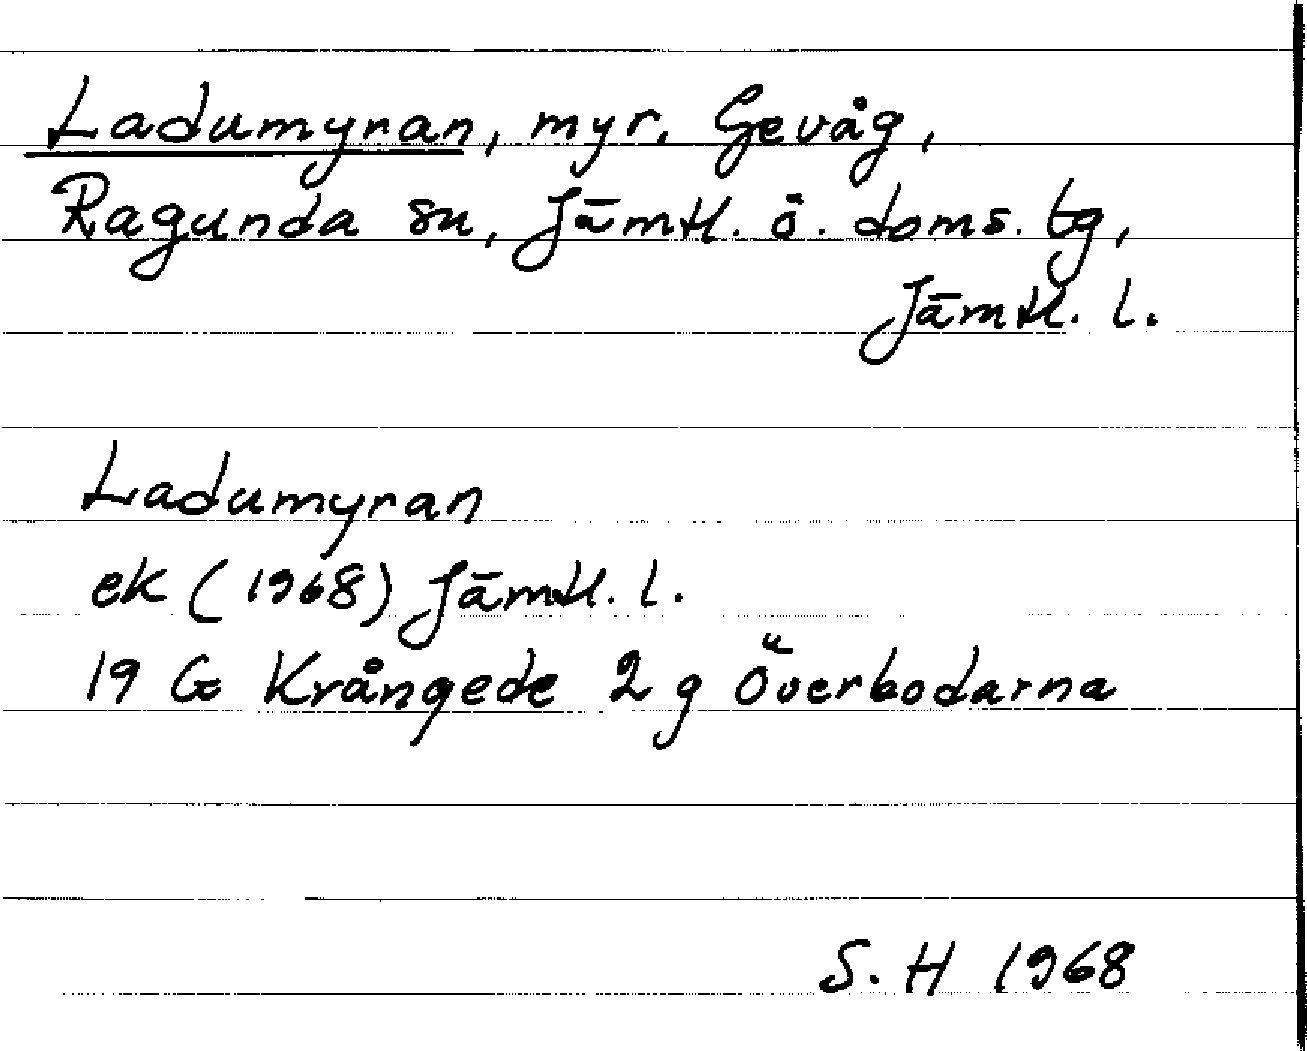 Ladumyran, myr. Gevåg,
Ragunda sn, Jämtl. ö. doms. tg,
Jämtl. l.
Ladumyran
ek (1968) Jämtl. l.
19 G Krångede 2 g Överbodarna
S. H 1968